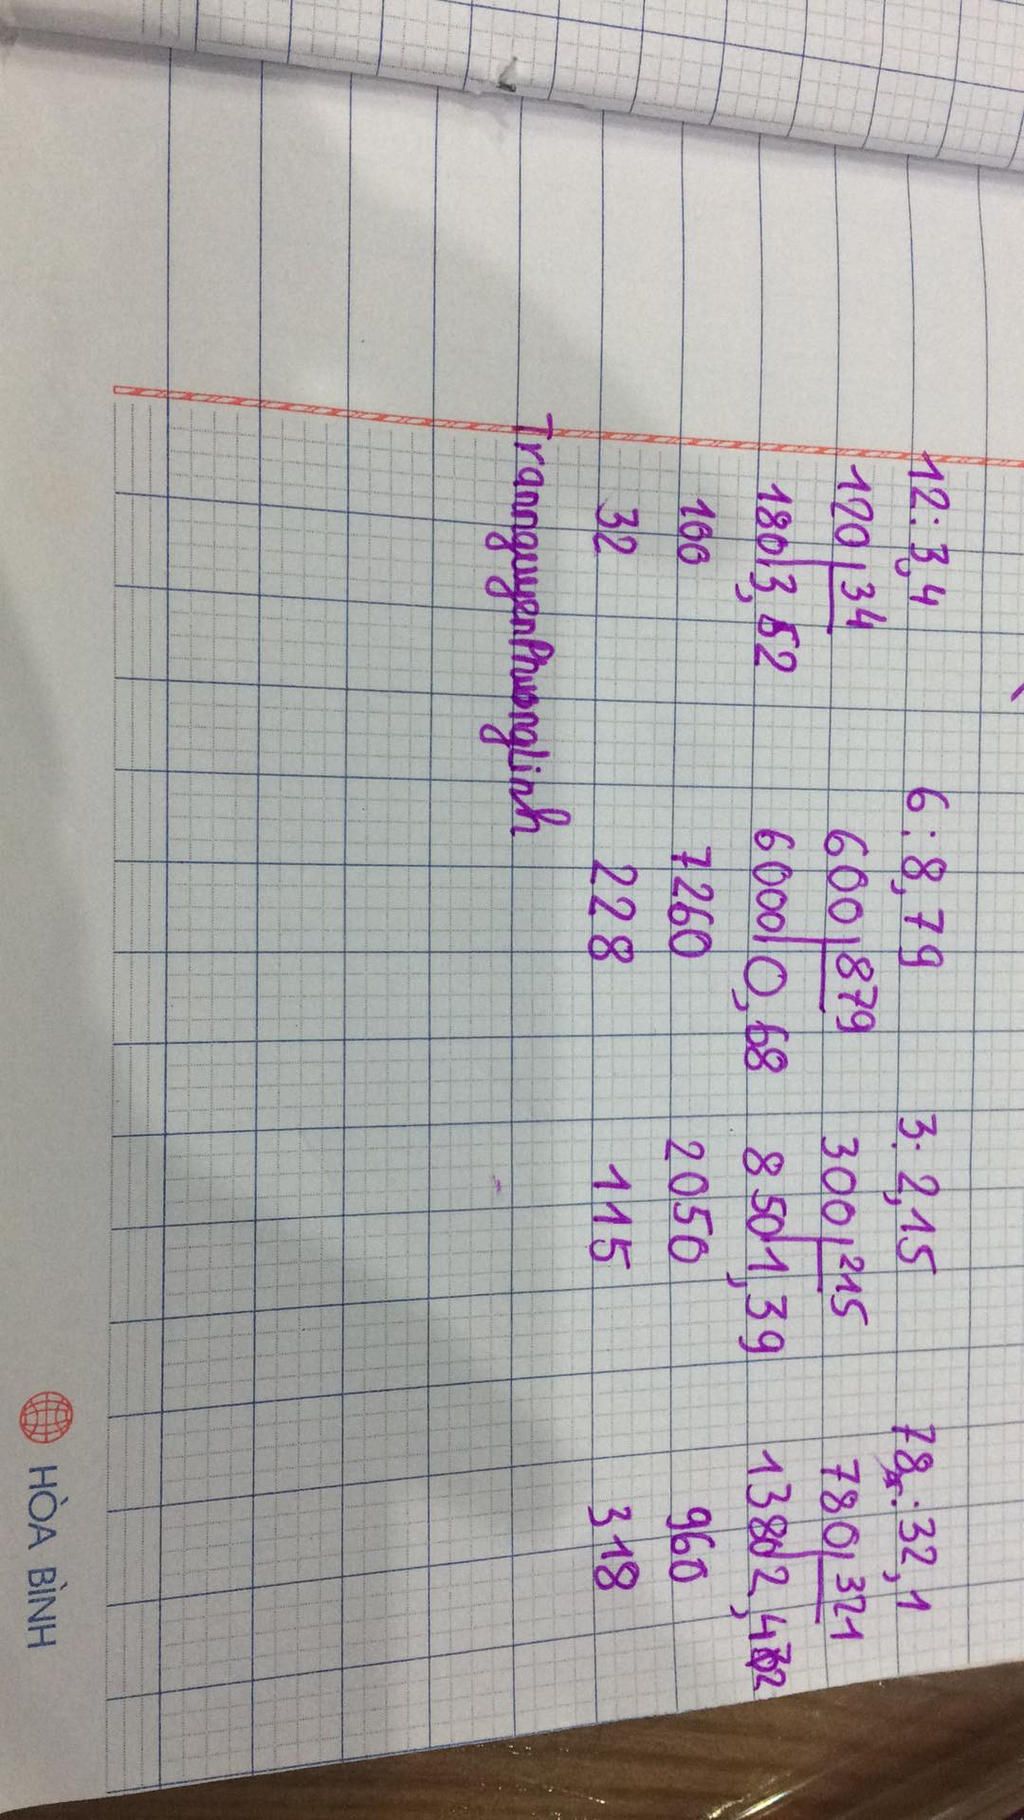 12:3,4 6:8,79 3:2,15 78:32,1
120 34 600 879 300 215 780 321
180 3,52 6000 0,68 850 1,39 1380 2,42
100 7260 2050 960
32 228 115 318
TrannguyenPhuonglinh
HÒA BÌNH